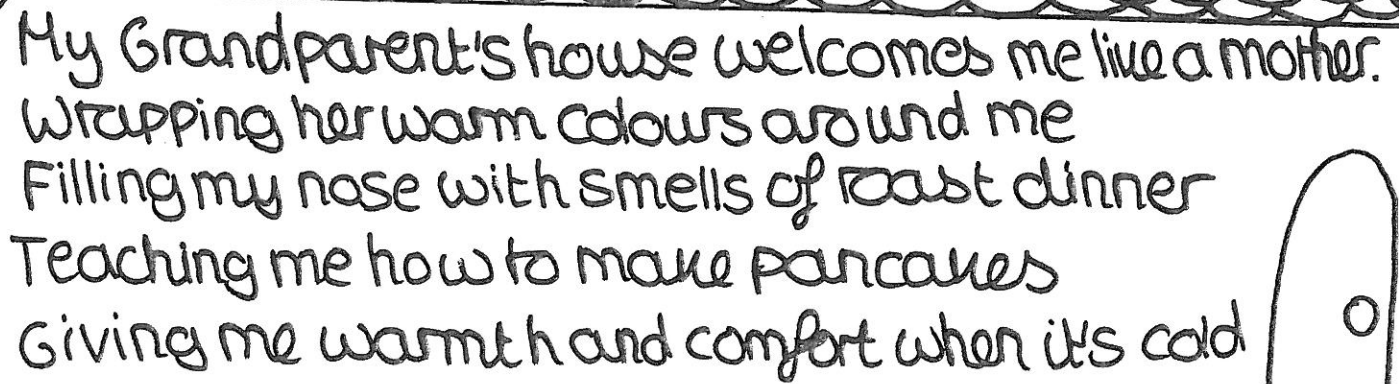 My Grandparent's house welcomes me like a mother.
Wrapping her warm colours around me
Filling my nose with smells of roast dinner
Teaching me how to make pancakes
Giving me warmth and comfort when it's cold